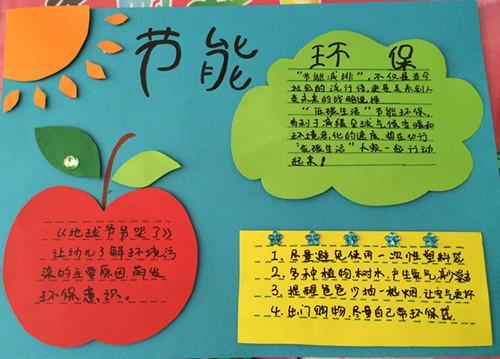 节能
环 保
"节能减排"，不仅是当今
社会的流行语，更是关系到人
类未来的战略选择
"低碳生活"节能环保，
有利于减缓全球气候变暖和
环境恶化的速度，势在必行
"低碳生活"大家一起行动
起来！
《地球爷爷哭了》
让幼儿了解环境污
染的主要原因，萌发
环保意识。
1、尽量避免使用一次性塑料袋
2、多种植物，树木，产生氧气，减少雾霾
3、提醒爸爸少抽一根烟，让空气更好
4、出门购物，尽量自己带环保袋。